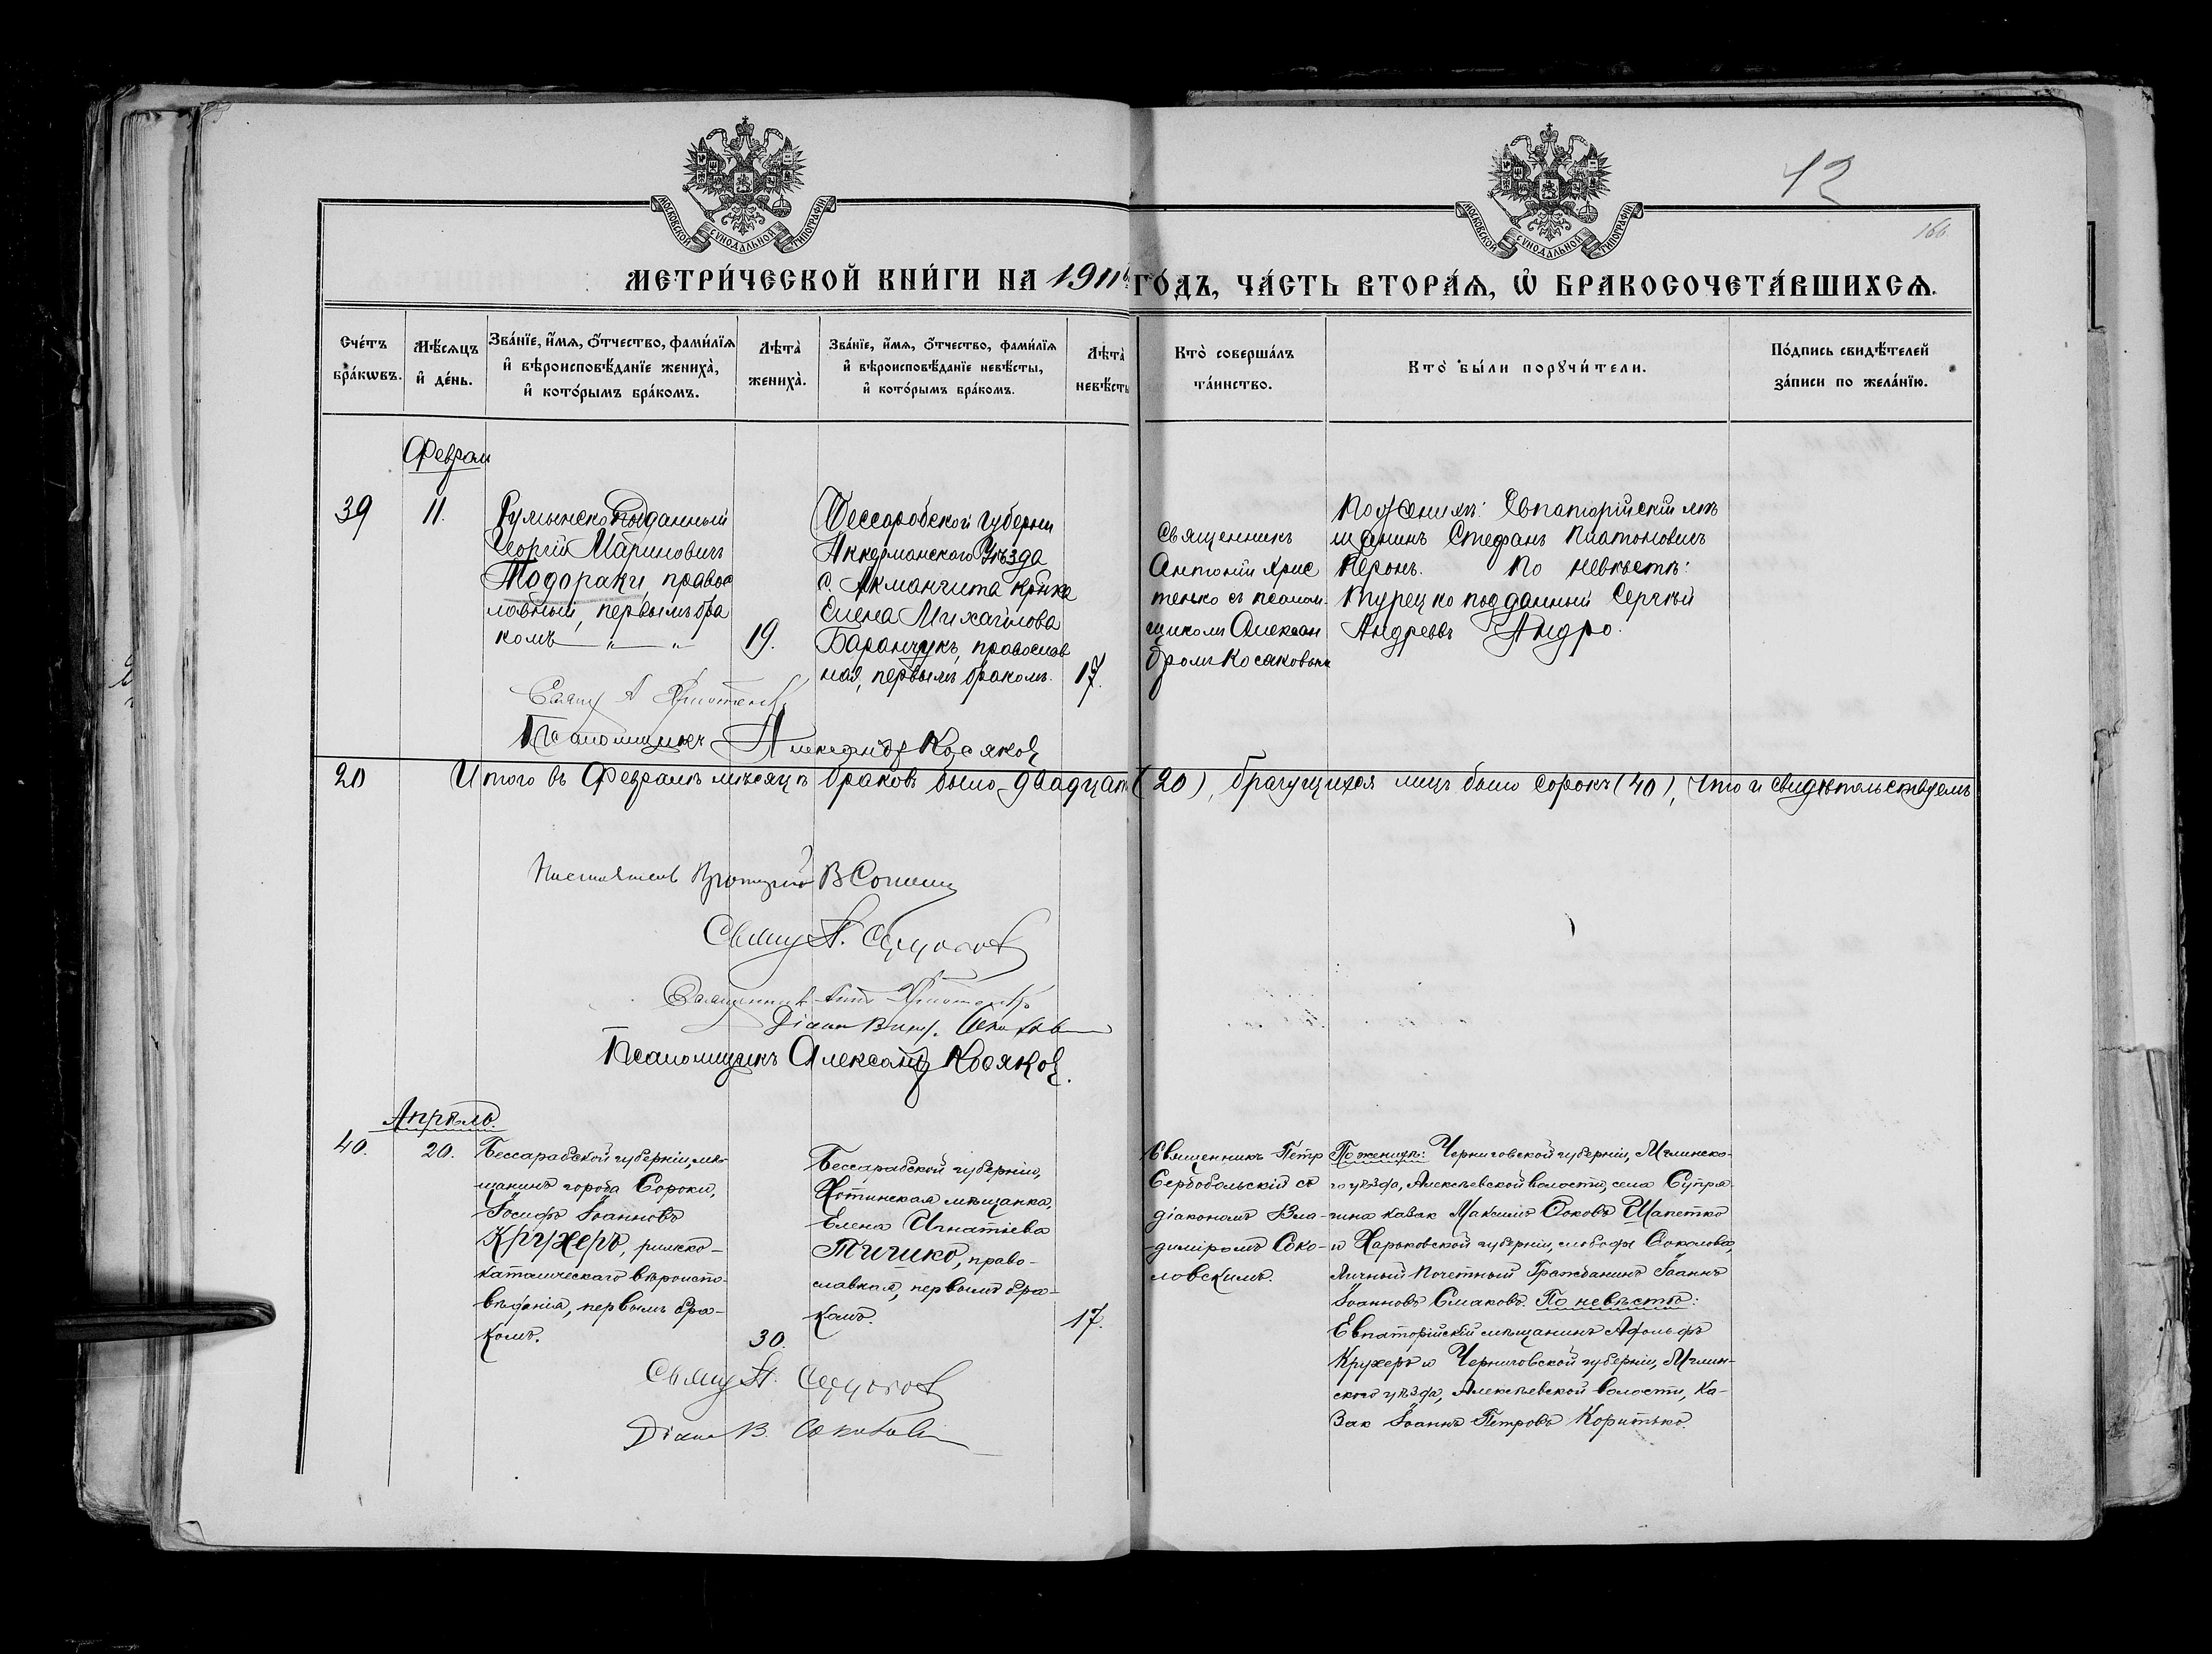 12
166
МОСКОВСКОЙ СѴНОДАЛЬНОЙ ТИПОГРАФІИ
МОСКОВСКОЙ СѴНОДАЛЬНОЙ ТИПОГРАФІИ
МЕТРИ́ЧЕСКОЙ КНИ́ГИ НА 1911й ГО́ДЪ, ЧА́СТЬ ВТОРА́Ѧ, Ѡ҆ БРАКОСОЧЕТА́ВШИХСѦ.
Сче́тъ
бра́кѡвъ.
Мѣ́сѧцъ
и҆ де́нь.
Зва́нїе, и҆́мѧ, ѻ҆́тчество, фами́лїѧ
и҆ вѣроисповѣ́данїе жениха̀,
и҆ кото́рымъ бра́комъ.
Лѣта̀
жениха̀.
Зва́нїе, и҆́мѧ, ѻ҆́тчество, фами́лїѧ
и҆ вѣроисповѣ́данїе невѣ́сты,
и҆ кото́рымъ бра́комъ.
Лѣта̀
невѣ́сты
Кто̀ соверша́лъ
та́инство.
Кто̀ бы́ли порꙋчи́тели.
По́дпись свидѣ́телей
за́писи по жела́нїю.
Феврал
39
11.
Румынско подданный
Георгій Мариновичъ
Тодораки, правос
лавный, первымъ бра
комъ — „ — „
19.
Бессарабской губерніи
Аккерманского Уѣзда
с. Акмангита крѣнка
Елена Михайлова
Баранчукъ, православ
ная, первымъ бракомъ.
17.
Священникъ
Антоній Хрис
тенько съ псалом
щикомъ Алексан
дромъ Косяковымъ
По женихѣ: Евпаторійскій мѣ
щанинъ Стефанъ Платоновичъ
Перонъ. По невѣстѣ:
Турецко подданный Сергѣй
Андреевъ Андро.
Свящ А Христенко
Псаломщикъ Александр Косяков
20 Итого въ Февралѣ мѣсяцѣ браковъ было двадцать (20), брачущихся лицъ было сорокъ (40), что и свидѣтельствуемъ
Настоятель Протоіерей В
Свящ П.
Священникъ Ант Христенко
Діакон В
Псаломщикъ Александр Косяков.
Апрѣль.
40.
20.
Бессарабской губерніи, мѣ-
щанинъ города Сороки,
Іосифъ Іоанновъ
Крухеръ, римско-
католическаго вѣроиспо-
вѣданія, первымъ бра-
комъ.
30.
Бессарабской губерніи,
Хотинская мѣщанка,
Елена Игнатіева
Тичико, право-
славная, первымъ бра-
комъ.
17.
Священникъ Петръ
Сербобольскій съ
діакономъ Вла-
диміромъ Соко-
ловскимъ.
По женихѣ: Черниговской губерніи, Мглинско-
го уѣзда, Алексѣевской волости, села Супря-
гина казак Максимъ Шапетко
и Харьковской губерніи, слободы Соколова,
Личный Почетный Гражданинъ Іоаннъ
Іоанновъ Смаковъ. По невѣстѣ:
Евпаторійскій мѣщанинъ Адольфъ
Крухеръ и Черниговской губерніи, Мглин-
скаго уѣзда, Алексѣевской волости, Ка-
зак Іоаннъ Петровъ Коритько.
Свящ П.
Діакон В.